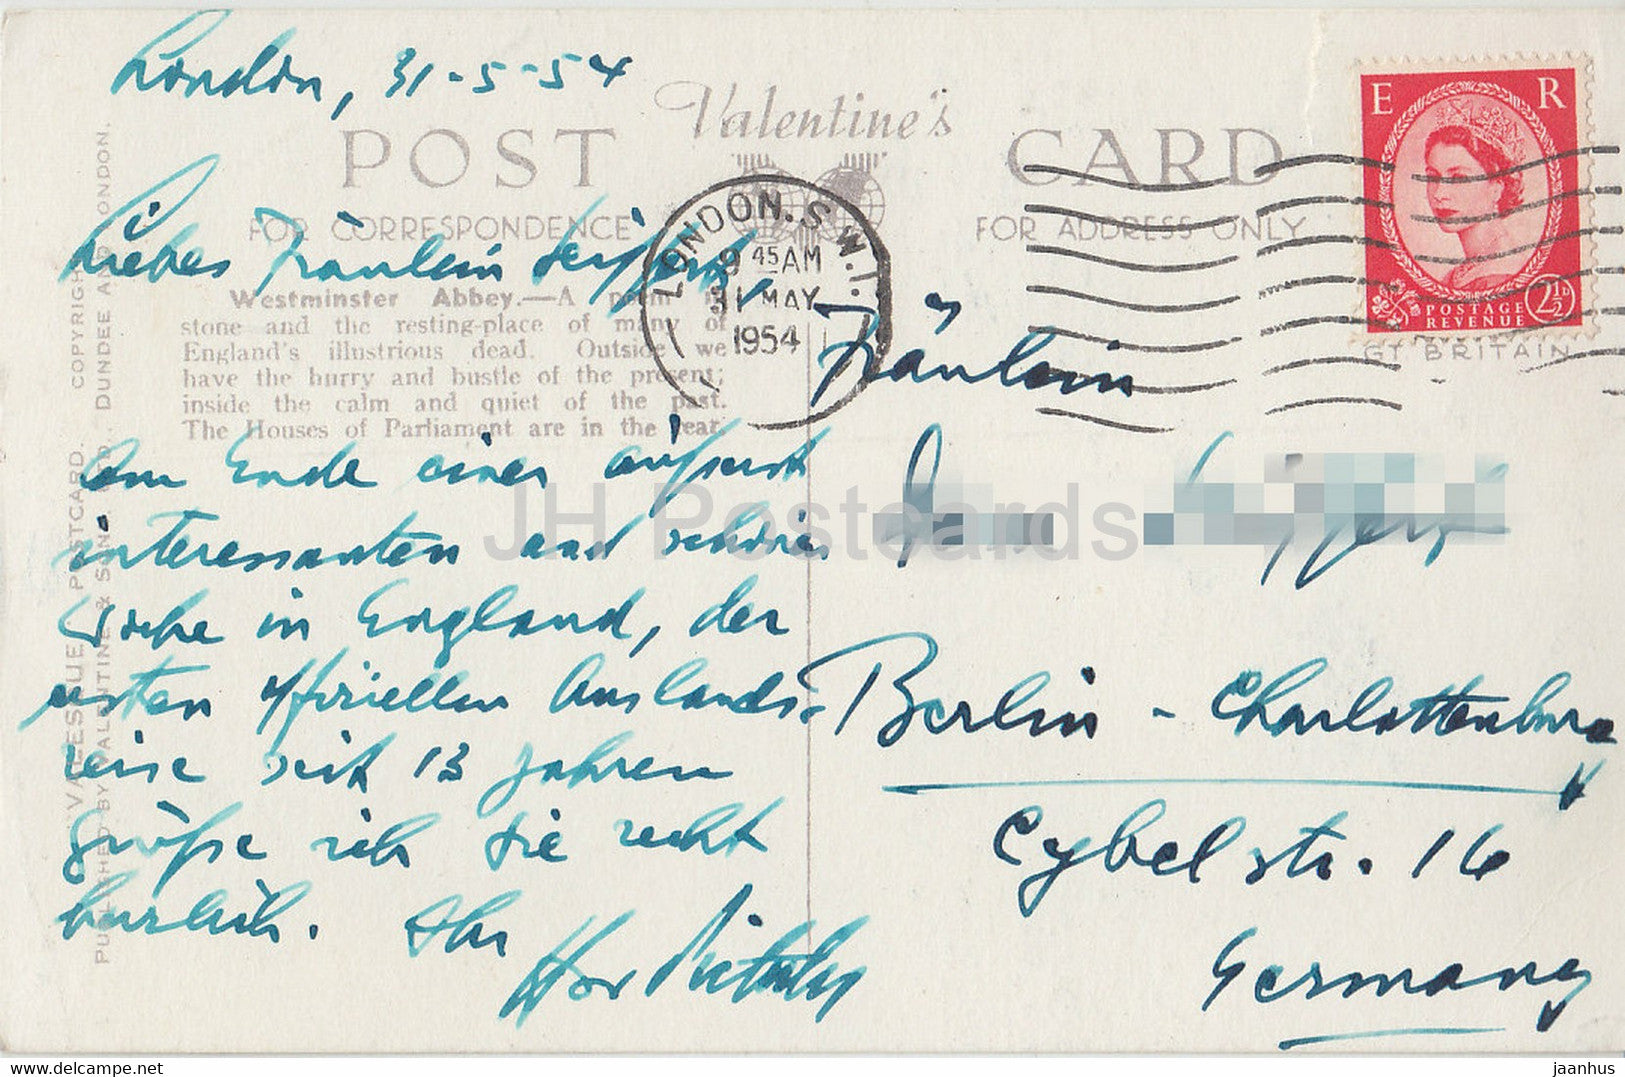 London, 31-5-54
Valentine's
POST CARD
FOR CORRESPONDENCE
FOR ADDRESS ONLY
LONDON. S.W.1.
9 45 AM
31 MAY
1954
E R
POSTAGE
REVENUE
2½D
GT BRITAIN
Liebes Fräulein
Westminster Abbey.—A poem in
stone and the resting-place of many of
England's illustrious dead. Outside we
have the hurry and bustle of the present;
inside the calm and quiet of the past.
The Houses of Parliament are in the rear.
Am Ende einer äußerst
interessanten und schönen
Woche in England, der
ersten offiziellen Auslands-
reise seit 13 Jahren
grüße ich Sie recht
herzlich. Ihr
Fräulein
Berlin - Charlottenburg
Cybelstr. 16
Germany
"VALESQUE" POSTCARD. COPYRIGHT.
PUBLISHED BY VALENTINE & SONS, LTD., DUNDEE AND LONDON.
JH Postcards
www.delcampe.net
jaanhus